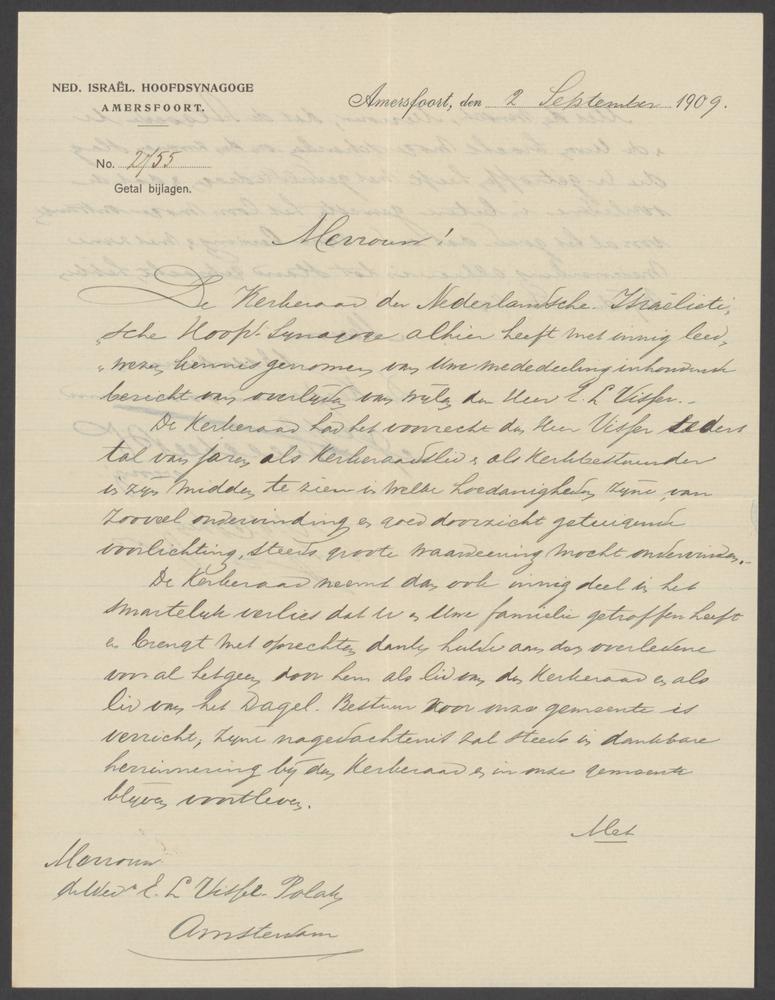 NED. ISRAËL. HOOFDSYNAGOGE
AMERSFOORT.
Amersfoort, den 2 September 1909.
No. 2/55
Getal bijlagen.
Mevrouw!
De Kerkeraad der Nederlandsche Israëlieti,
"sche Hoofd-Synagoge alhier heeft met innig leed,
"wezen kennis genomen van Uwe mededeeling inhoudende
bericht van overlijden van wijlen den Heer E. L Visser.-
De Kerkeraad had het voorrecht den Heer Visser seders
tal van jaren als Kerkeraadslid & als Kerkbestuurder
in zijn midden te zien in welke hoedanigheden zijne van
zooveel ondervinding en goed doorzicht getuigende
voorlichting, steeds groote waardeering mocht ondervinden.-
De Kerkeraad neemt dan ook innig deel in het
smartelijk verlies dat U en Uwe familie getroffen heeft
en brengt met oprechten dank hulde aan den overledene
voor al hetgeen door hem als lid van den Kerkeraad en als
lid van het Dagel. Bestuur voor onze gemeente is
verricht, zijne nagedachtenis zal steeds in dankbare
herrinnering bij den Kerkeraad en in onze gemeente
blijven voortleven.
Met
Mevrouw
de Wede E. L Visser-Polak
Amsterdam